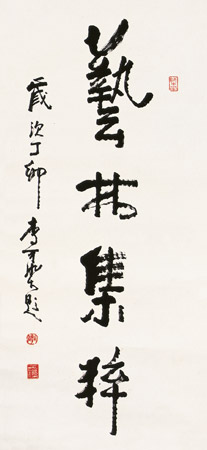 藝林集粹
歲次丁卯李可染題